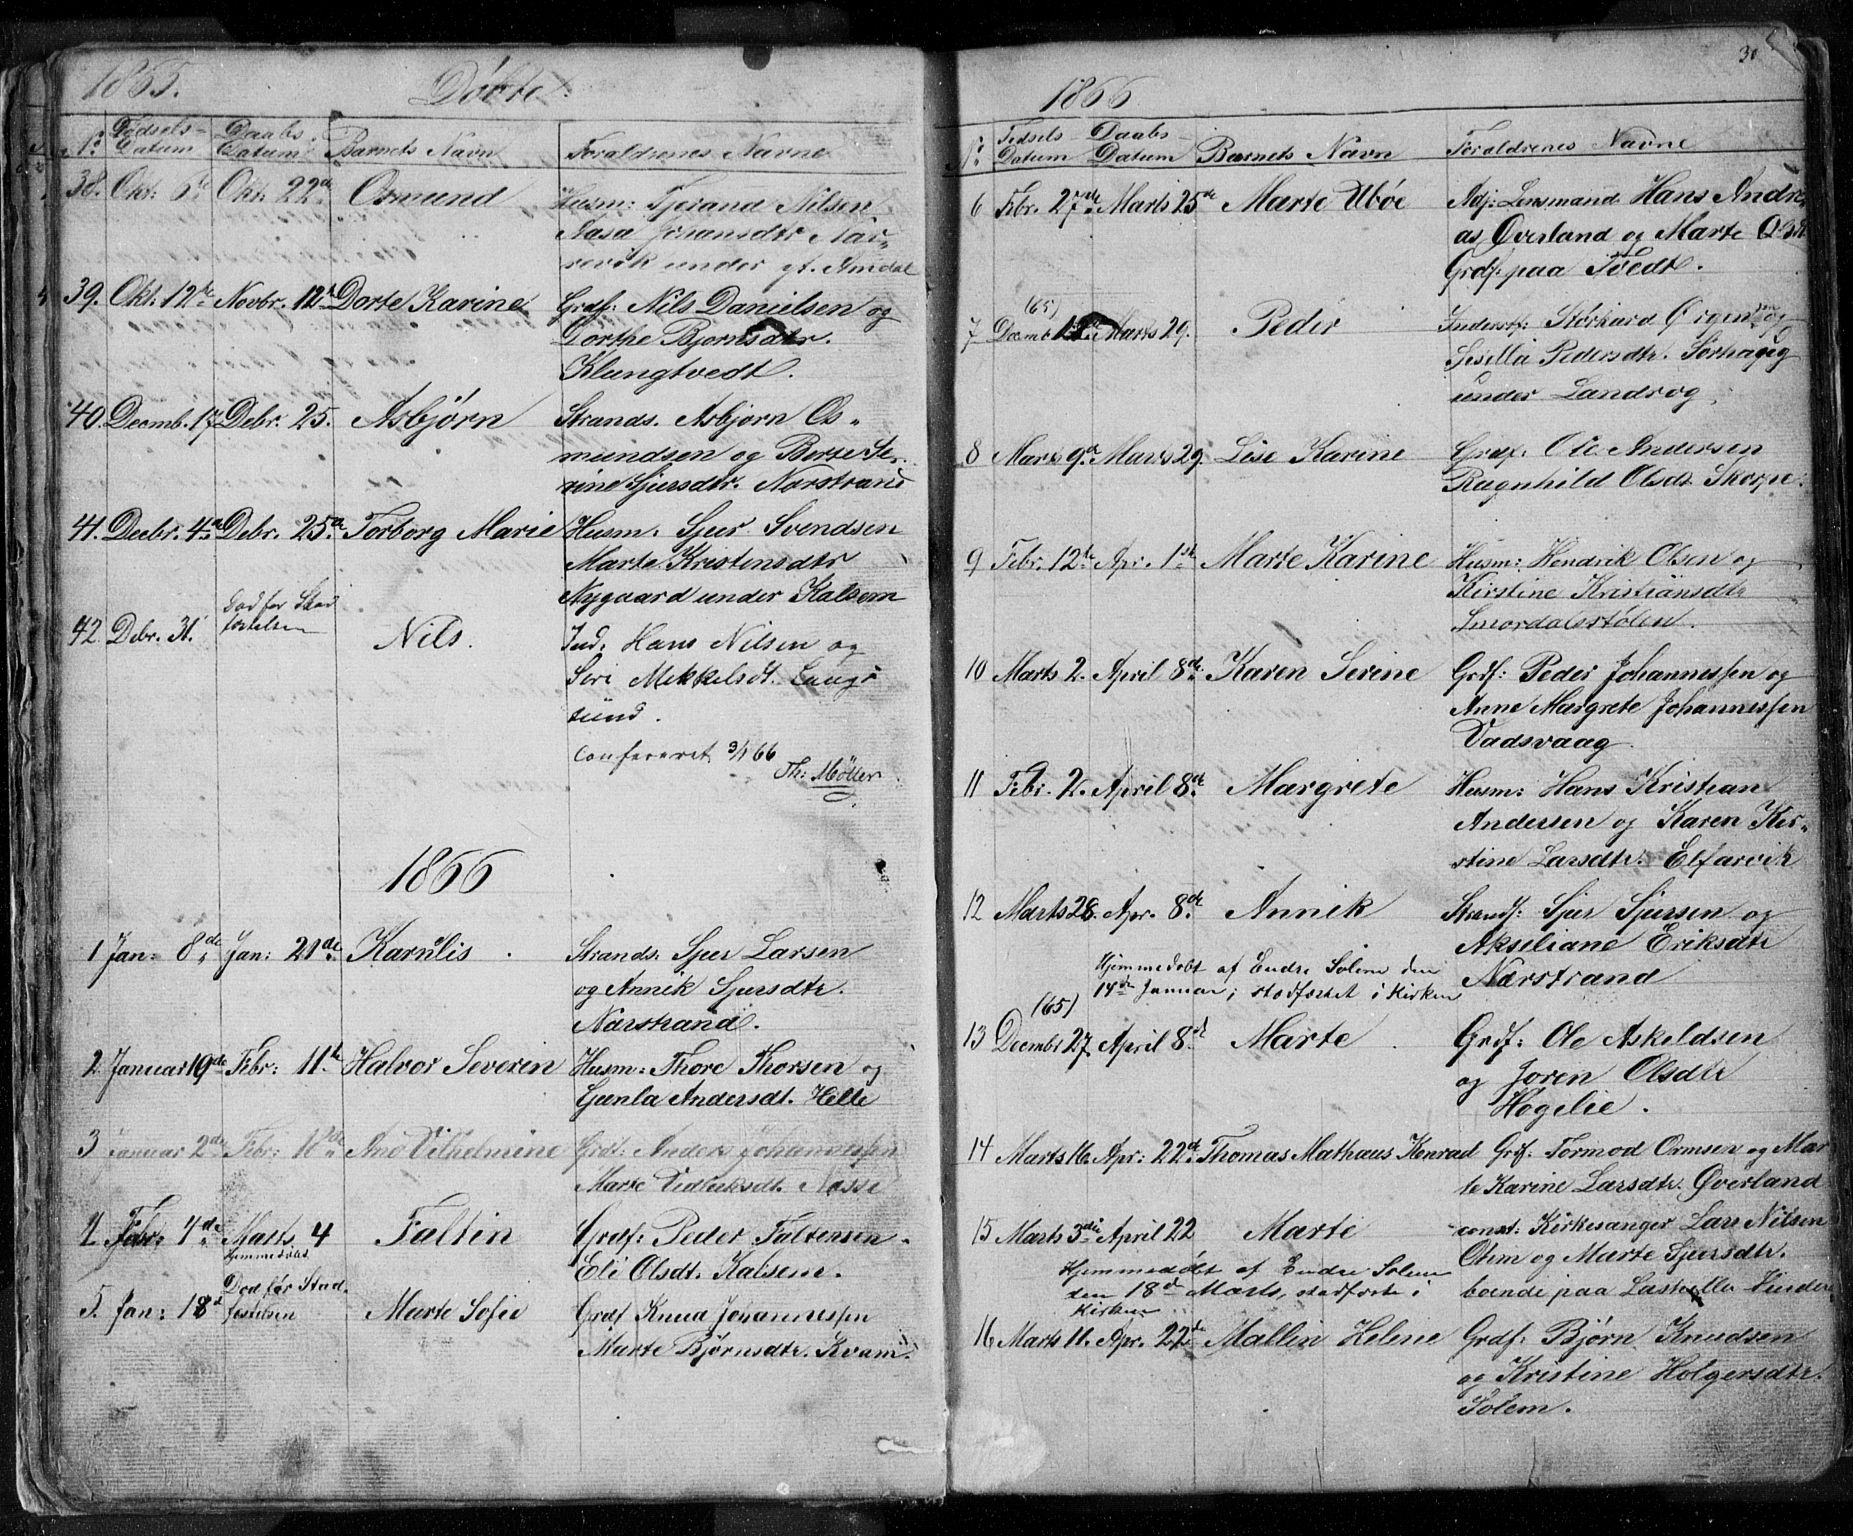 1865. Døbte.
No Fødsels-Datum Daabs Datum Barnets Navn Forældrenes Navne
38. Okt: 6te Okt. 22de Osmund Husm: Tjerand Nilsen
Aasa Johansdtr Nær-
revik under gf. Amdal
39. Okt. 12te Novbr. 12te Dorte Karine Grdf: Nils Danielsen og
Dorthe Bjørnsdtr.
Klungtvedt.
40. Decmb. 17 Debr. 25. Asbjørn Strands. Asbjørn Os-
mundsen og Berte Se-
rine Sjursdtr. Narstrand
41. Decbr. 4de Debr. 25de Torborg Marie Husm: Sjur Svendsen
Marte Kristensdtr
Nygaard under Kalsem
42 Debr. 31. Død før Stad
festelsen Nils. Ind. Hans Nilsen og
Siri Mekkelsdt. Laugs
sund.
Confereret 3/1 66
Th: Möller
1866
1 Jan: 8de Jan: 21de Karnlis. Strands: Sjur Larsen
og Annik Sjursdtr.
Narstrand.
2 Januar 19de Febr: 11te Halvor Severin Husm: Thore Thorsen og
Gunla Andersdt. Helle
3 Januar 2de Febr: 18de Ane Vilhelmine Grdf: Anders Johannessen
Marte Didriksdt. Nasse
4. Febr: 4de Marts 4 Faltin Grdf: Peder Faltinsen
Hjemmedøbt Eli Olsdt. Kalsem.
5. Jan: 18d Død før Stad-
festelsen Marte Sofie Grdf Knud Johannessen
Marte Bjørnsdtr. Kvam.
30
1866
No Fødsels Datum Daabs Datum Barnets Navn Forældrenes Navne
6 Febr. 27de Marts 25de Marte Ubøe Adj: Lensmand Hans Andre
as Øverland og Marte
Grdf. paa Tvedt.
(65)
7 Decmb Marts 29. Peder Inderstf: Størkard
Sisella Pedersdtr. Sørhageg
under Landrog
8 Marts 9de Marts 29. Lise Karine Grdf. Ole Andersen
Ragnhild Olsdt Skorpe.
9 Febr. 12te Apr. 1ste Marte Karine Husm: Hendrik Olsen og
Kirstine Kristiansdtr
Smørdalsstølen.
10 Marts 2. April 8de Karen Serine Grdf: Peder Johannessen og
Anne Margrete Johannessen
Vadsvaag
11 Febr. 2. April 8de Margrete Husm: Hans Kristian
Andersen og Karen Kir-
stine Larsdtr. Elfarvik
12 Marts 28. Apr. 8de Annik Strandf: Sjur Sjursen og
Akseliane Eriksdtr
Nærstrand
Hjemmedøbt af Endre Solem den
14de Januar; stadfæstet i Kirken
(65)
13 Decmbr 27 April 8de Marte. Grdf: Ole Askeldsen
og Joren Olsdtr
Høgelie.
14 Marts 16. Apr: 22de Thomas Mathæus Konrad Grdf. Tormod Ormsen og Mar
te Karine Larsdtr. Øverland
15 Marts 3die April 22 Marte const: Kirkesanger Lars Nilsen
Ohm og Marte Sjursdtr.
Hjemmedøbt af Endre Solem
den 18d Marts, stadfæste i
Kirken boende paa
16 Marts 11. Apr. 22de Mallin Helene Grdf: Bjørn Knudsen
og Kristine Holgersdtr.
Solem.